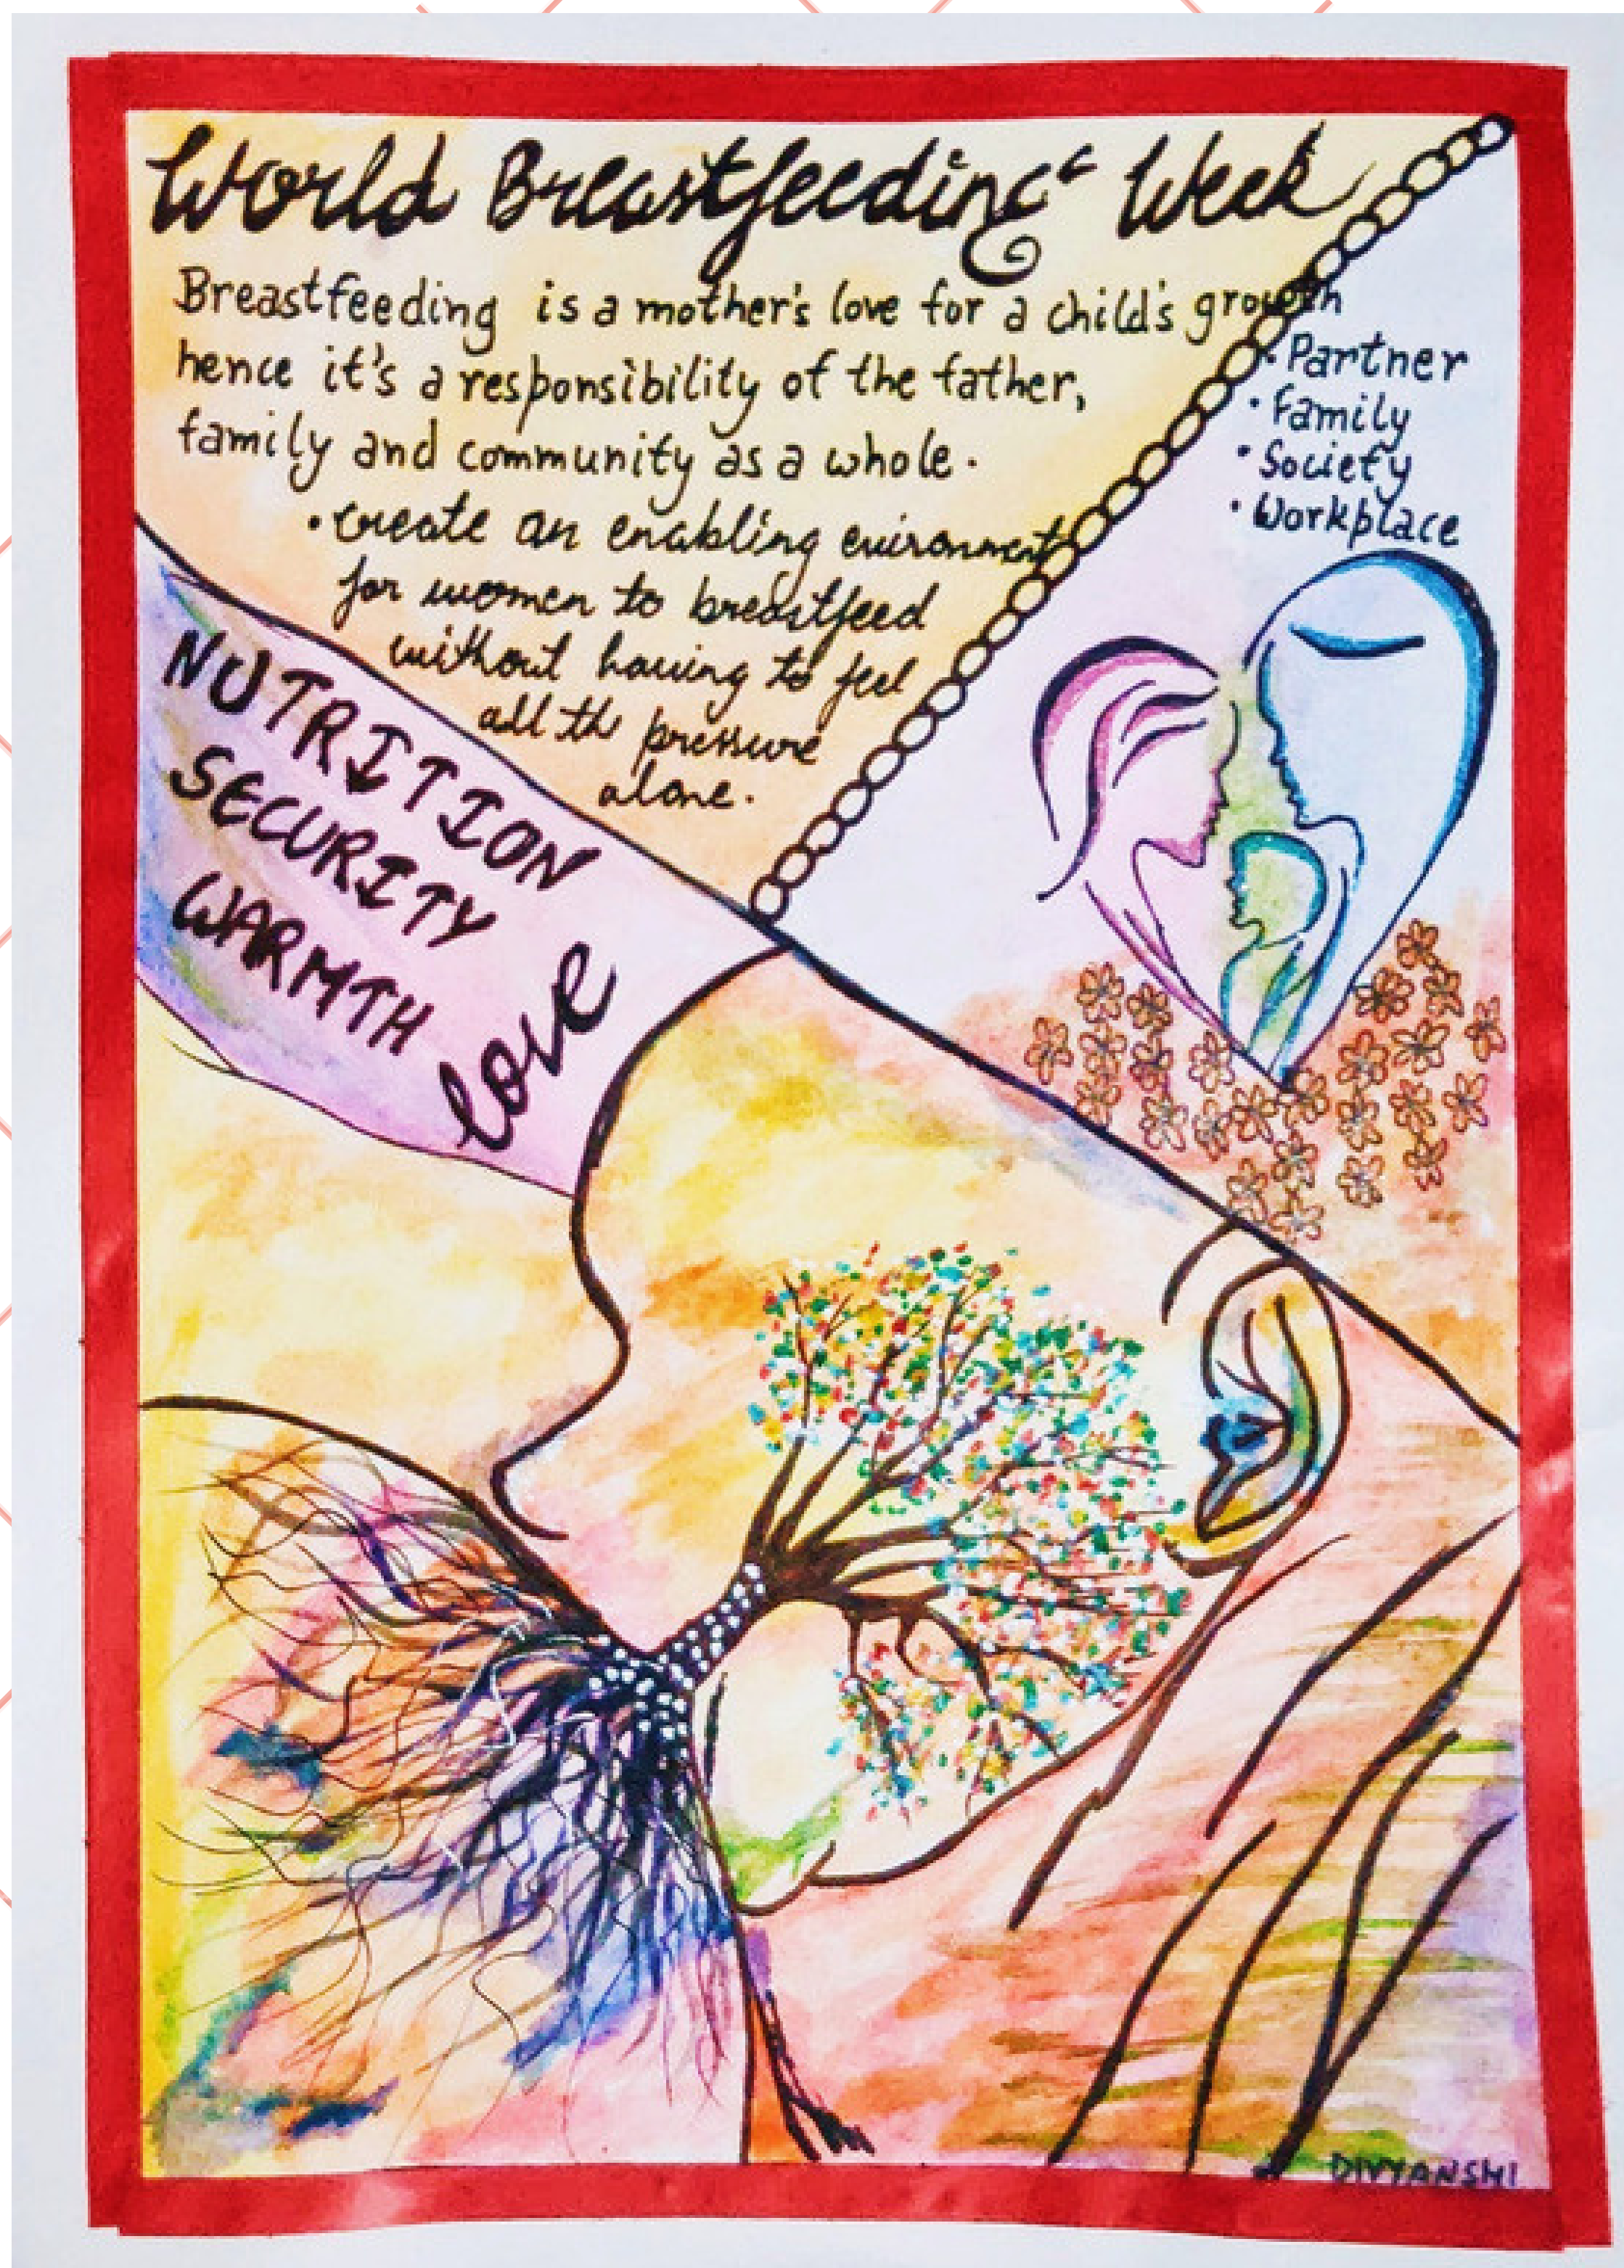 World Breastfeeding Week
Breastfeeding is a mother's love for a child's growth
hence it's a responsibility of the father,
family and community as a whole.
• Create an enabling evironment
for women to breastfeed
without having to feel
all th pressure
alone.
• Partner
• Family
• Society
• Workplace
NUTRITION
SECURITY
WARMTH
LOVE
DIVYANSHI